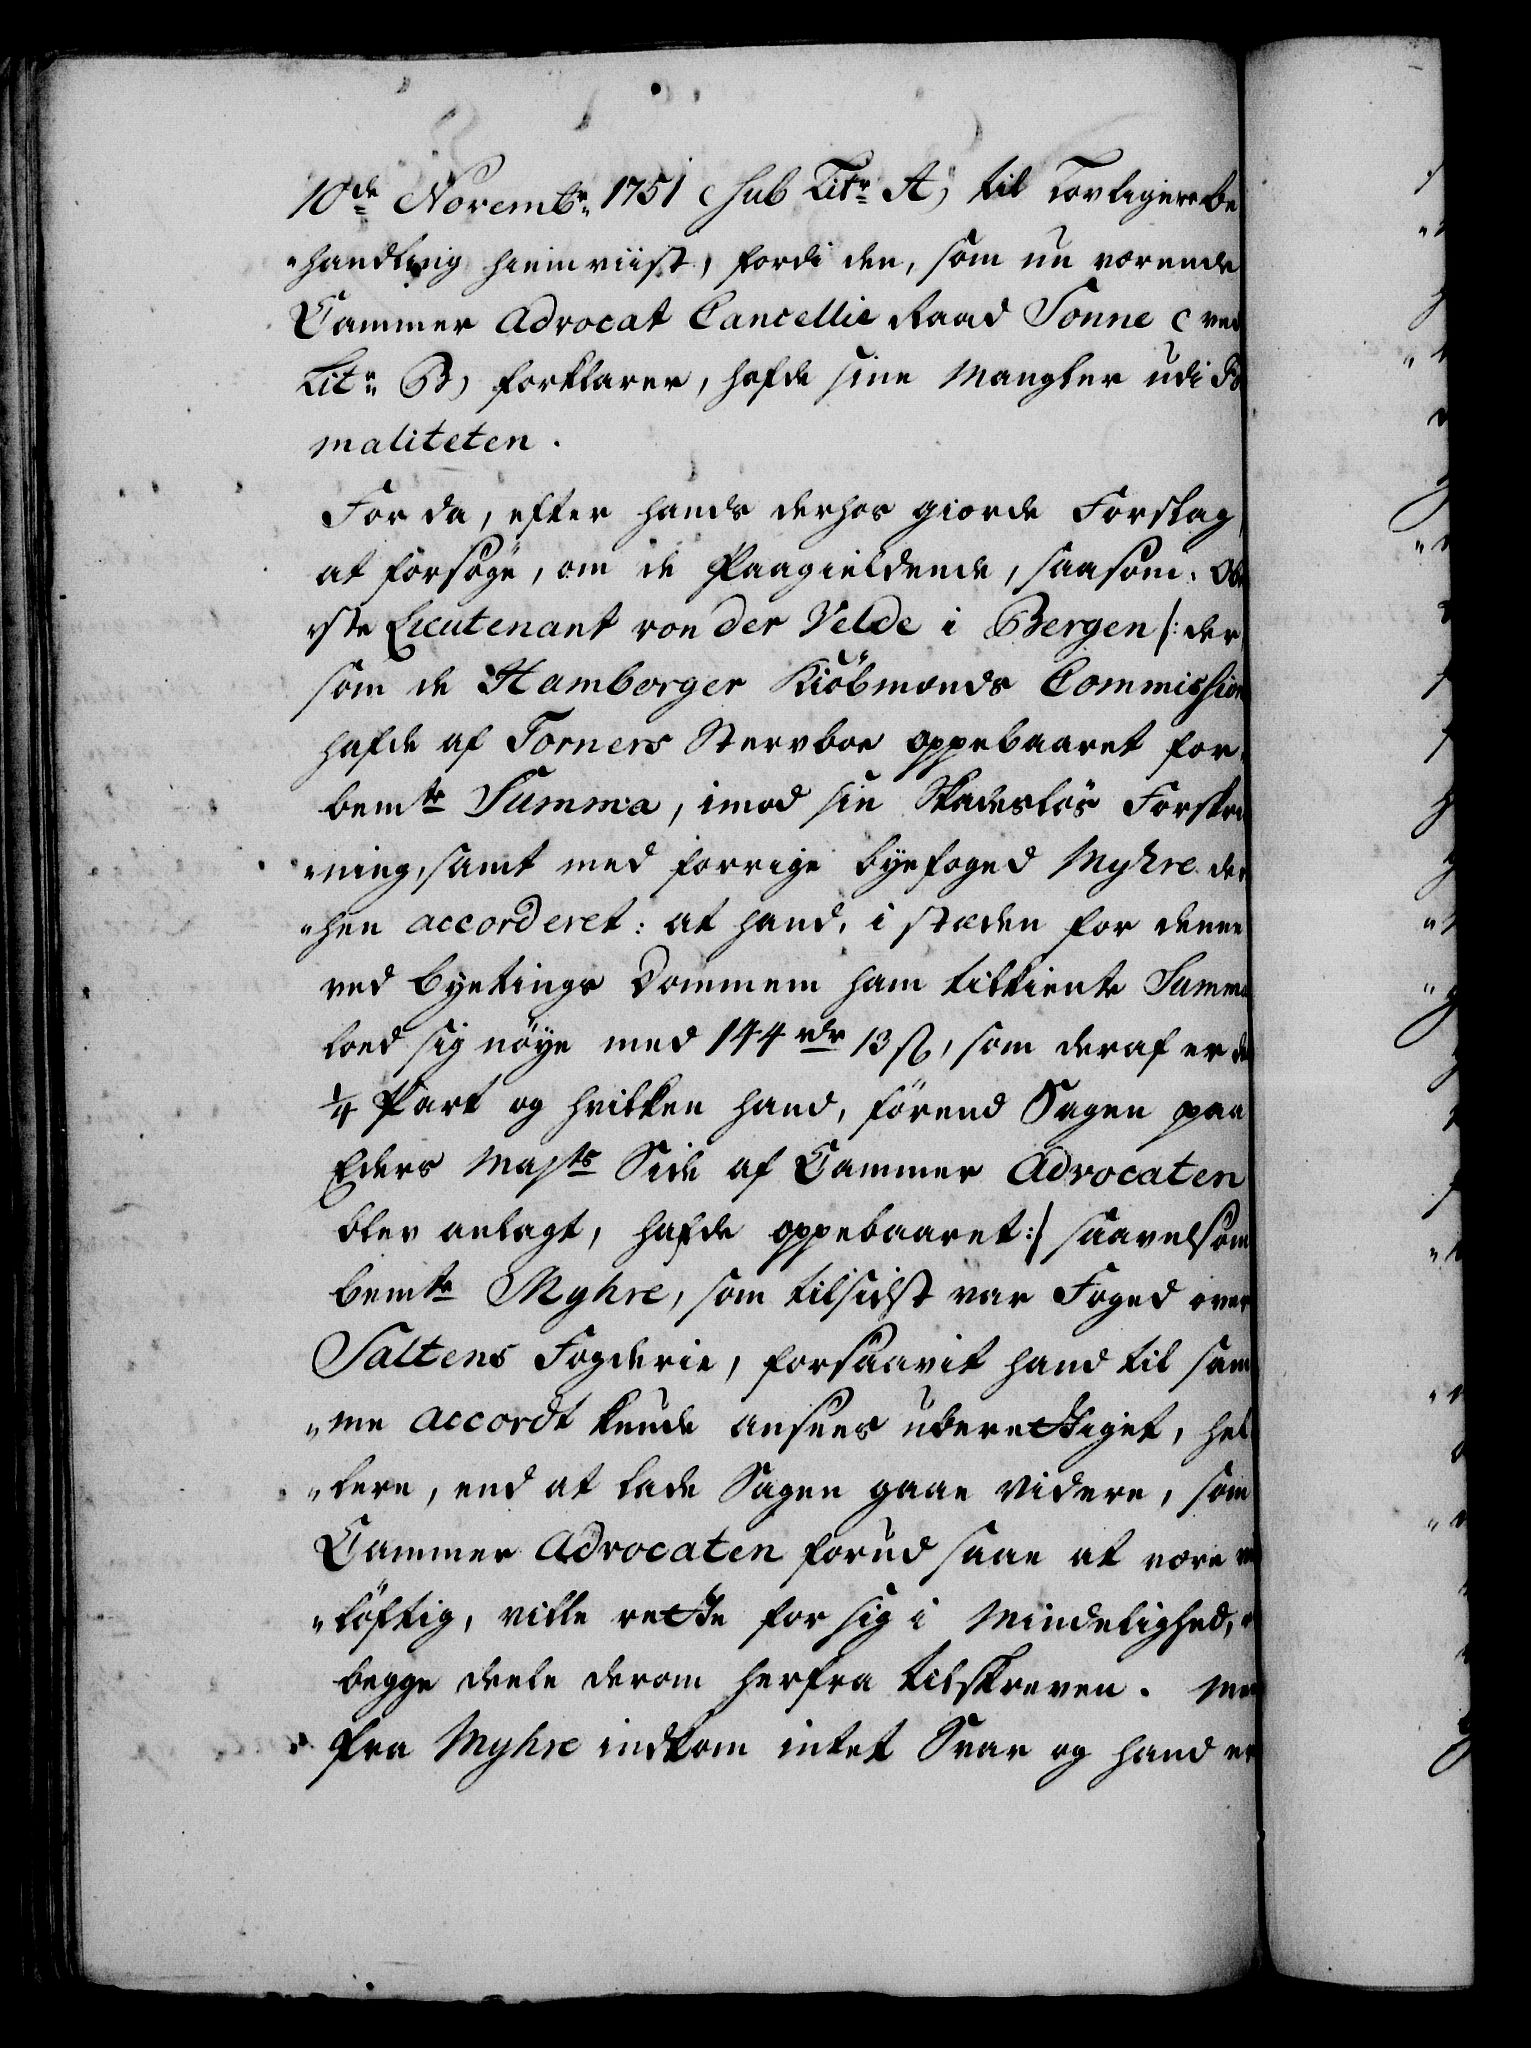 10de Novembr 1751 (sub Litr A) til Lovligere be
"handling hiemviist, fordi den, som nu værende
Cammer Advocat Cancellie Raad Sonne (ved
Litr B) forklarer, hafde sine Mangler udi Fo
maliteten.
For da, efter hands derhos giorde Forslag
at forsøge, om de Paagieldende, saasom: Ob
rste Lieutenant von der Velde i Bergen /: der
som de Hamborger Kiøbmænds Commission
hafde af Torners Stervboe oppebaaret for
bemte Summa, imod sin Skadesløs Forskri
"ning, samt med forrige byefoged Myhre der
"hen accorderet: at hand, i stæden for denne
ved byetings Dommen ham tilkiente Summa
loed sig nøye med 144 rdr 13 s, som deraf er de
1/4 Part og hvilken hand, førend Sagen paa
Eders Mayts Side af Cammer Advocaten
blev anlagt, hafde oppebaaret :/ saavelsom
bemte Myhre, som tilsidst var Foged over
Saltens Fogderie, forsaavit hand til sam
"me accordt kunde ansees uberettiget, hel
"lere, end at lade Sagen gaae videre, som
Cammer Advocaten forud saae at være
"løftig, ville rette for sig i Mindelighed,
begge deele derom herfra tilskreven. Men
fra Myhre indkom intet Svar og hand er